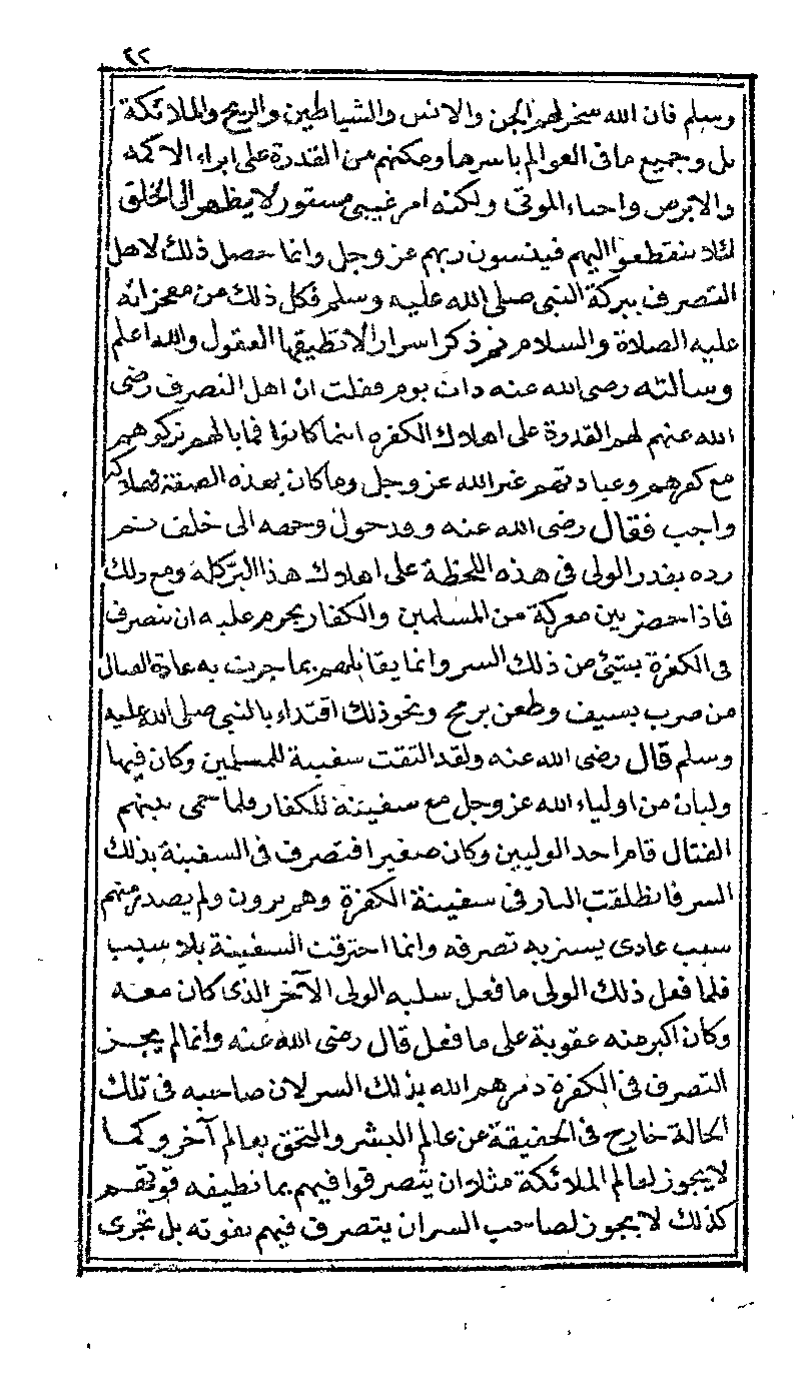 ٢٢
وسلم فان الله سخر لهم الجن والانس والشياطين والريح والملائكة
بل وجميع ما فى العوالم باسرها ومكنهم من القدرة على ابراء الاكمه
والابرص واحياء الموتى ولكنه امر غيبى مستور لا يظهر الى الخلق
لئلا ينقطعوا اليهم فينسون ربهم عز وجل وانما حصل ذلك لاهل
التصرف ببركة النبى صلى الله عليه وسلم فكل ذلك من معجزاته
عليه الصلاة والسلام ثم ذكر اسرارا لا تطيقها العقول والله اعلم
وسالته رضى الله عنه ذات يوم فقلت ان اهل التصرف رضى
الله عنهم لهم القدرة على اهلاك الكفرة اينما كانوا فما بالهم تركوهم
مع كفرهم وعبادتهم غير الله عز وجل وما كان بهذه الصفة فهلاكه
واجب فقال رضى الله عنه وقد حول وجهه الى خلف ثم
رده يقدر الولى فى هذه اللحظة على اهلاك هذا البر كله ومع ذلك
فاذا حضر بين معركة من المسلمين والكفار يحرم عليه ان يتصرف
فى الكفرة بشئ من ذلك السر وانما يقاتلهم بما جرت به عادة القتال
من ضرب بسيف وطعن برمح ونحو ذلك اقتداء بالنبى صلى الله عليه
وسلم قال رضى الله عنه ولقد التقت سفينة للمسلمين وكان فيها
وليان من اولياء الله عز وجل مع سفينة للكفار فلما حمى بينهم
القتال قام احد الوليين وكان صغيرا فتصرف فى السفينة بذلك
السر فانطلقت النار فى سفينة الكفرة وهم يرون ولم يصدر منهم
سبب عادى يستر به تصرفه وانما احترقت السفينة بلا سبب
فلما فعل ذلك الولى ما فعل سلبه الولى الآخر الذى كان معه
وكان اكبر منه عقوبة على ما فعل قال رضى الله عنه وانما لم يجز
التصرف فى الكفرة دمرهم الله بذلك السر لان صاحبه فى تلك
الحالة خارج فى الحقيقة عن عالم البشر والتحق بعالم آخر وكما
لا يجوز لعالم الملائكة مثلا ان يتصرفوا فيهم بما تطيقه قوتهم
كذلك لا يجوز لصاحب السر ان يتصرف فيهم بقوته بل تجرى